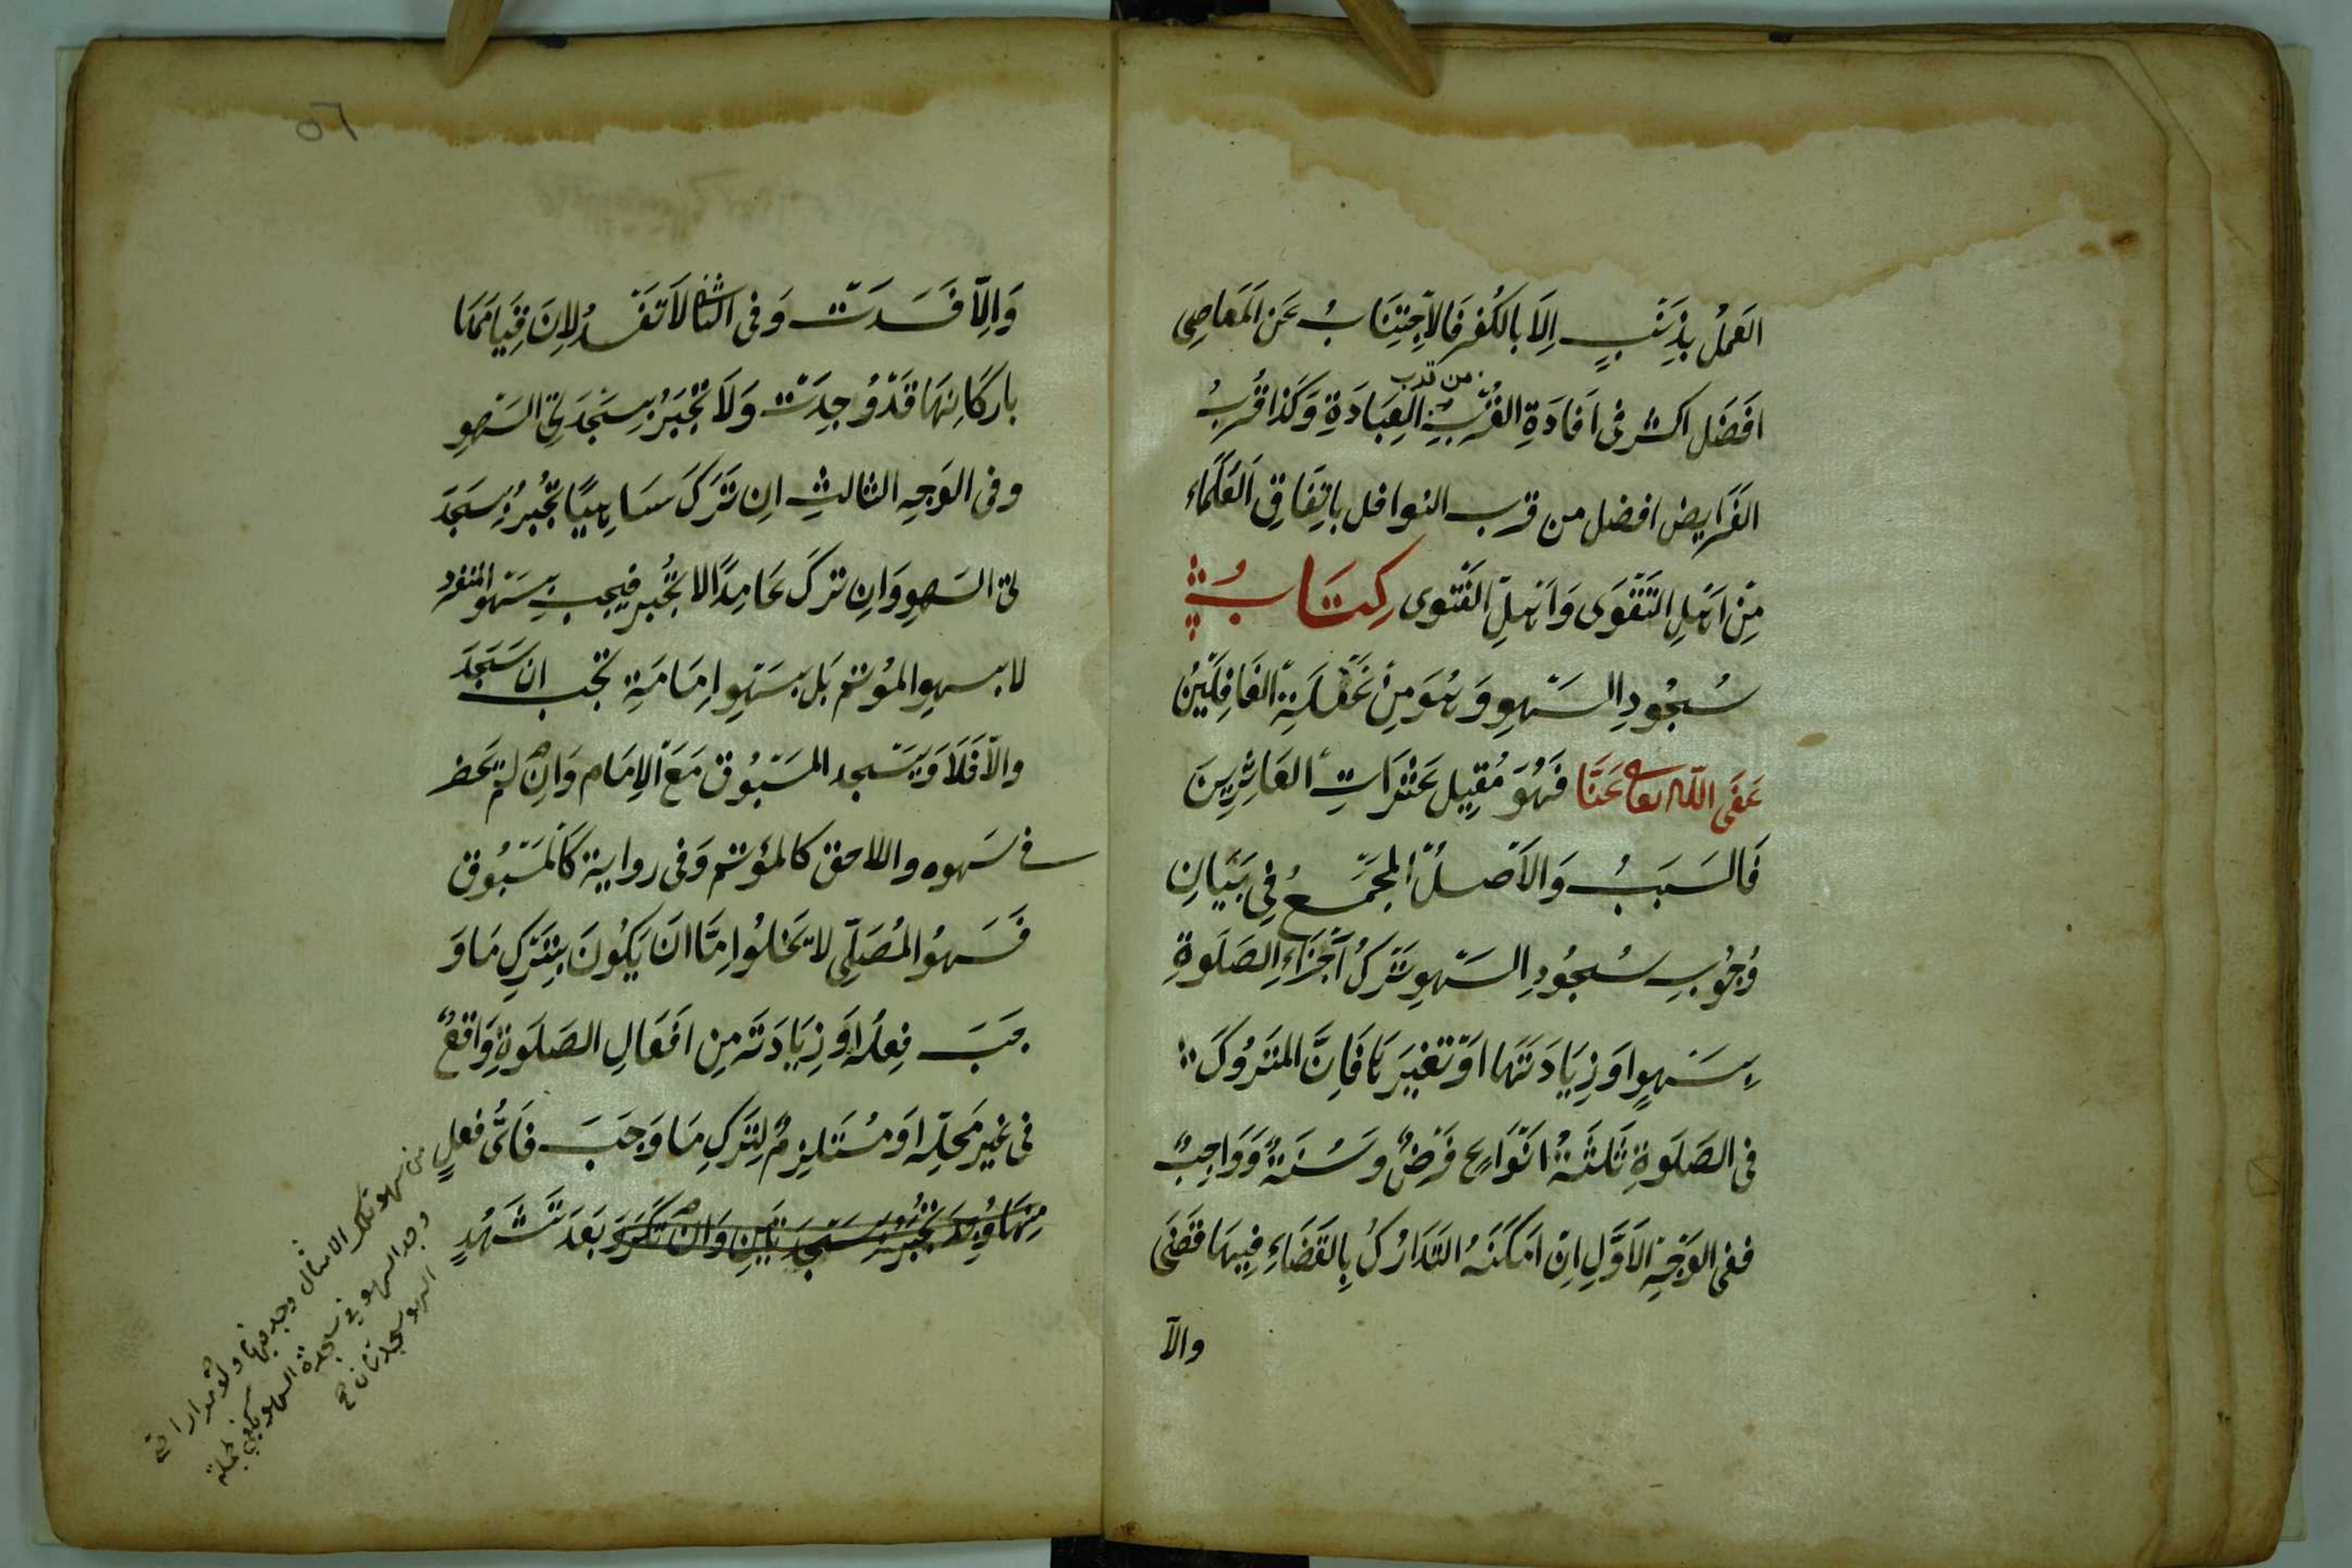 العَمَلُ بِذَنْبٍ اِلَّا بِالكُفْرِ فَالاِجْتِنَابُ عَنِ المَعَاصِى
من قرب
اَفضَل اكثر فى اَفادَةِ القُرْبِ العِبَادَةِ وَكَذا قُرْبُ
الفَرَايِض افضل من قرب النوافل بِاتِفَاقِ العُلَمَاء
مِنْ اَهْلِ التَقْوَى وَاَهْلِ الفَتْوى كِتَابُ
سُجُودِ السَهْوِ وَهُوَ مِنْ غَفْلَةِ الغَافِلِيْنَ
عَفَى اللّه تعا عَنَّا فَهُوَ مُقِيل عَثْرَاتِ العَاثِرِينَ
فَالسَبَبُ وَالاَصْلُ المجْمَعُ فِى بَيَانِ
وُجُوبِ سُجُودِ السَهْوِ تَرْكُ اَجْزَاءِ الصَلَوةِ
بِسَهْوٍ اَو زِيَادَتَهَا اَوْ تَغْيِيَرهَا فَاِنَّ المتْرُوكَ
فى الصَلَوةِ ثَلٰثَةُ اَنْوَاعٍ فَرْضٌ وَسُنَةٌ وَوَاجِبٌ
ففى الوَجْهِ الاَوَّلِ اِنْ اَمْكَنَهُ التَدَارُكُ بِالقَضَاءِ فِيهَا قَضَى
والاّ
٥٦
وَاِلَّا فَسَدَتْ وَفى الثانى لاَ تَفْسُدُ لِاَنَ قِيَامَهَا
باركَانِهَا قَدْ وُجِدَتْ وَلاَ تُجْبَرُ بِسَجْدَتَىِ السَهْوِ
وفى الوَجِهِ الثالثِ اِن تَرَكَ سَاهِيًا تُجْبَرُ بِسَجْدَ
تى السَهوِ وَاِن تركَ عَامِدًا لا تُجْبر فيجب بِسَهْو المنفرد
لا بسهوِ المُوتم بَل بسَهْوِ اِمَامَةِ تجب ان سَجَدَ
والّا فَلَا وَيَسْجد المسَبُوق مَعَ الاِمَام وَاِنْ لم يَحضر
فى سَهوه واللاحق كالمؤتم وَفى رواية كَالمَسْبُوق
فَسَهوُ المُصَلِّى لا يَخلوُا اِمَّا اَن يَكُونَ بِتَرْكِ مَا وَ
جَبَ فِعلُهُ اَو زِيَادَتَه مِن اَفعَالِ الصَلَوةِ وَاقعٌ
فى غيرِ مَحَلِّه اَو مُسْتَلِزِمٌ لِتَركِ مَا وَجَبَ فَاَىُّ فعلٍ
مِنْهَا وُجِدَ تُجْبَرُ بِسَجْدَتَيْنِ وَاِنْ تَكَرَّرَ بَعَدَ تَشَهُدٍ
من سهو تلك الافعال وجد فيها
وجد السهو فى سجدة السهو يكفى
السهو سجدتان صح